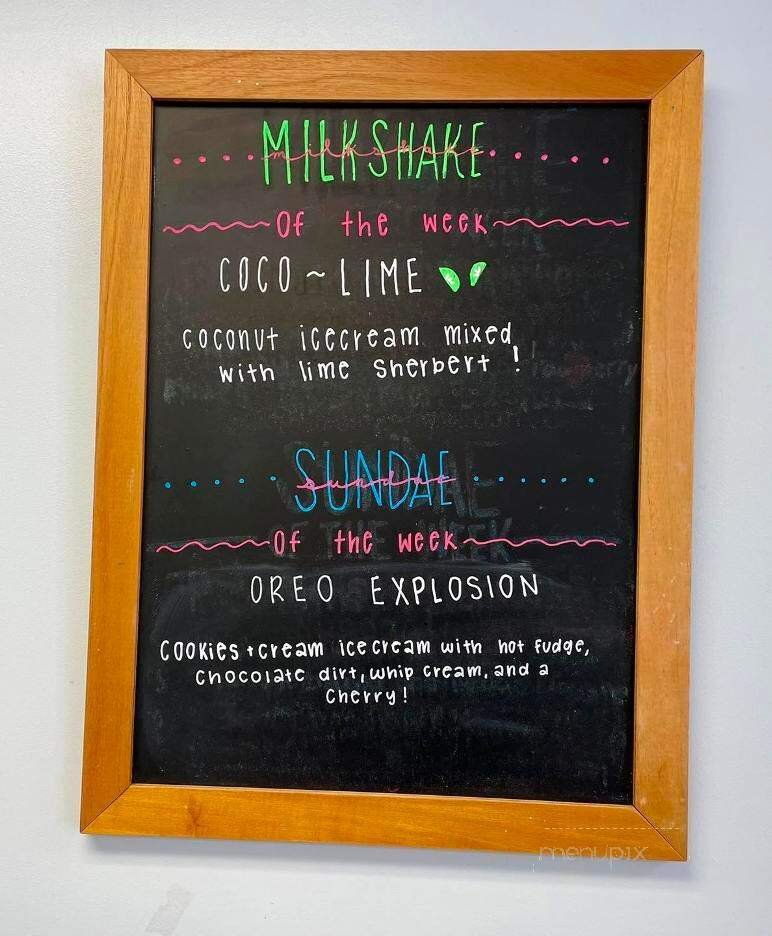 MILKSHAKE
milkshake
Of the week
COCO ~ LIME
coconut icecream mixed
with lime sherbert !
SUNDAE
sundae
Of the week
OREO EXPLOSION
Cookies + cream ice cream with hot fudge,
Chocolate dirt, whip cream, and a
Cherry!
menupix